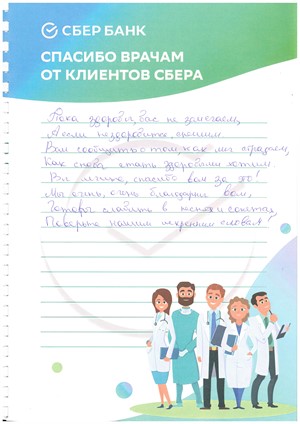 СБЕР БАНК
СПАСИБО ВРАЧАМ
ОТ КЛИЕНТОВ СБЕРА
Пока здоровы, вас не замечаем,
А если нездоровится, спешим
Вам сообщить о том, как мы страдаем,
Как снова стать здоровыми хотим.
Вы лечите, спасибо вам за это!
Мы очень, очень благодарны вам,
Готовы славить в песнях и сонетах,
Поверьте нашим искренним словам!